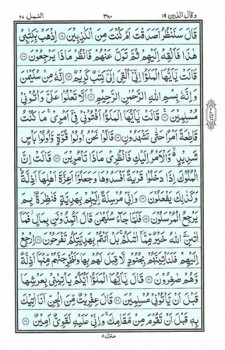 وقال الذين ١٩ ٣٨٠ النمل ٢٧
قَالَ سَنَنْظُرُ اَصَدَقْتَ اَمْ كُنْتَ مِنَ الْكٰذِبِیْنَ ۝ اِذْهَبْ بِّكِتٰبِیْ
هٰذَا فَاَلْقِهْ اِلَیْهِمْ ثُمَّ تَوَلَّ عَنْهُمْ فَانْظُرْ مَا ذَا یَرْجِعُوْنَ ۝
قَالَتْ یٰۤاَیُّهَا الْمَلَؤُا اِنِّیْۤ اُلْقِیَ اِلَیَّ كِتٰبٌ كَرِیْمٌ ۝ اِنَّهٗ مِنْ سُلَیْمٰنَ
وَ اِنَّهٗ بِسْمِ اللّٰهِ الرَّحْمٰنِ الرَّحِیْمِ ۝ اَلَّا تَعْلُوْا عَلَیَّ وَ اْتُوْنِیْ
مُسْلِمِیْنَ ۝ قَالَتْ یٰۤاَیُّهَا الْمَلَؤُا اَفْتُوْنِیْ فِیْۤ اَمْرِیْ مَا كُنْتُ
قَاطِعَةً اَمْرًا حَتّٰی تَشْهَدُوْنِ ۝ قَالُوْا نَحْنُ اُولُوْا قُوَّةٍ وَّ اُولُوْا بَاْسٍ
شَدِیْدٍ وَّ الْاَمْرُ اِلَیْكِ فَانْظُرِیْ مَا ذَا تَاْمُرِیْنَ ۝ قَالَتْ اِنَّ
الْمُلُوْكَ اِذَا دَخَلُوْا قَرْیَةً اَفْسَدُوْهَا وَ جَعَلُوْۤا اَعِزَّةَ اَهْلِهَاۤ اَذِلَّةً
وَ كَذٰلِكَ یَفْعَلُوْنَ ۝ وَ اِنِّیْ مُرْسِلَةٌ اِلَیْهِمْ بِهَدِیَّةٍ فَنٰظِرَةٌۢ بِمَ
یَرْجِعُ الْمُرْسَلُوْنَ ۝ فَلَمَّا جَآءَ سُلَیْمٰنَ قَالَ اَتُمِدُّوْنَنِ بِمَالٍ فَمَاۤ
اٰتٰىنِۦَ اللّٰهُ خَیْرٌ مِّمَّاۤ اٰتٰىكُمْ بَلْ اَنْتُمْ بِهَدِیَّتِكُمْ تَفْرَحُوْنَ ۝ اِرْجِعْ
اِلَیْهِمْ فَلَنَاْتِیَنَّهُمْ بِجُنُوْدٍ لَّا قِبَلَ لَهُمْ بِهَا وَ لَنُخْرِجَنَّهُمْ مِّنْهَاۤ اَذِلَّةً
وَّ هُمْ صٰغِرُوْنَ ۝ قَالَ یٰۤاَیُّهَا الْمَلَؤُا اَیُّكُمْ یَاْتِیْنِیْ بِعَرْشِهَا
قَبْلَ اَنْ یَّاْتُوْنِیْ مُسْلِمِیْنَ ۝ قَالَ عِفْرِیْتٌ مِّنَ الْجِنِّ اَنَا اٰتِیْكَ
بِهٖ قَبْلَ اَنْ تَقُوْمَ مِنْ مَّقَامِكَ وَ اِنِّیْ عَلَیْهِ لَقَوِیٌّ اَمِیْنٌ ۝
منزل ٥